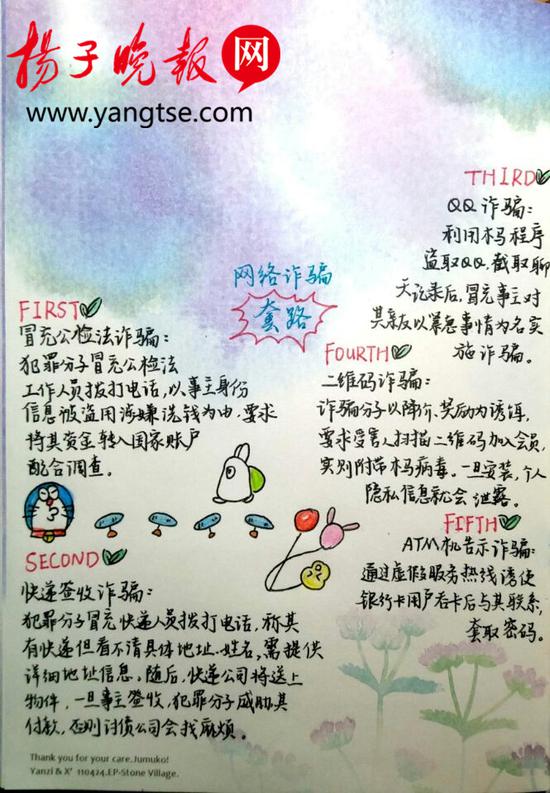 扬子晚报网
www.yangtse.com
网络诈骗
套路
FIRST
冒充公检法诈骗：
犯罪分子冒充公检法
工作人员拨打电话，以事主身份
信息被盗用涉嫌洗钱为由，要求
将其资金转入国家账户
配合调查。
SECOND
快递签收诈骗：
犯罪分子冒充快递人员拨打电话，称其
有快递但看不清具体地址、姓名，需提供
详细地址信息。随后，快递公司将送上
物件，一旦事主签收，犯罪分子威胁其
付款，否则讨债公司会找麻烦。
THIRD
QQ诈骗：
利用木马程序
盗取QQ，截取聊
天记录后，冒充事主对
其亲友以紧急事情为名实
施诈骗。
FOURTH
二维码诈骗：
诈骗分子以降价、奖励为诱饵，
要求受害人扫描二维码加入会员，
实则附带木马病毒。一旦安装，个人
隐私信息就会泄露。
FIFTH
ATM机告示诈骗：
通过虚假服务热线诱使
银行卡用户吞卡后与其联系，
套取密码。
Thank you for your care.Jumuko!
Yanzi & X' 110424.EP-Stone Village.